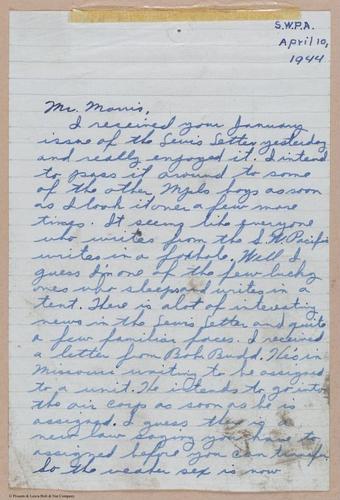 S.W.P.A.
April 10,
1944
Mr. Morris,
I received your January
issue of the Lewis Letter yesterday
and really enjoyed it. I intend
to pass it around to some
of the other Mpls boys as soon
as I look it over a few more
times. It seems like everyone
who writes from the S.W. Pacific
writes in a foxhole. Well I
guess I'm one of the few lucky
ones who sleeps and writes in a
tent. There is alot of interesting
news in the Lewis Letter and quite
a few familiar faces. I received
a letter from Bob Budd. He's in
Missouri waiting to be assigned
to a unit. He intends to go into
the air corps as soon as he is
assigned. I guess there is a
new law saying you have to
assigned before you can transfer.
So the weaker sex is now